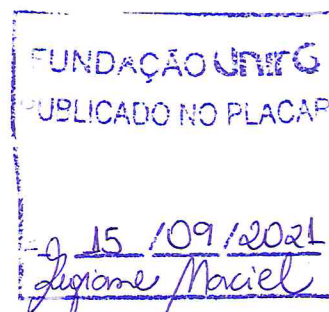 FUNDAÇÃO UnirG
PUBLICADO NO PLACAR
15 /09 /2021
Maciel